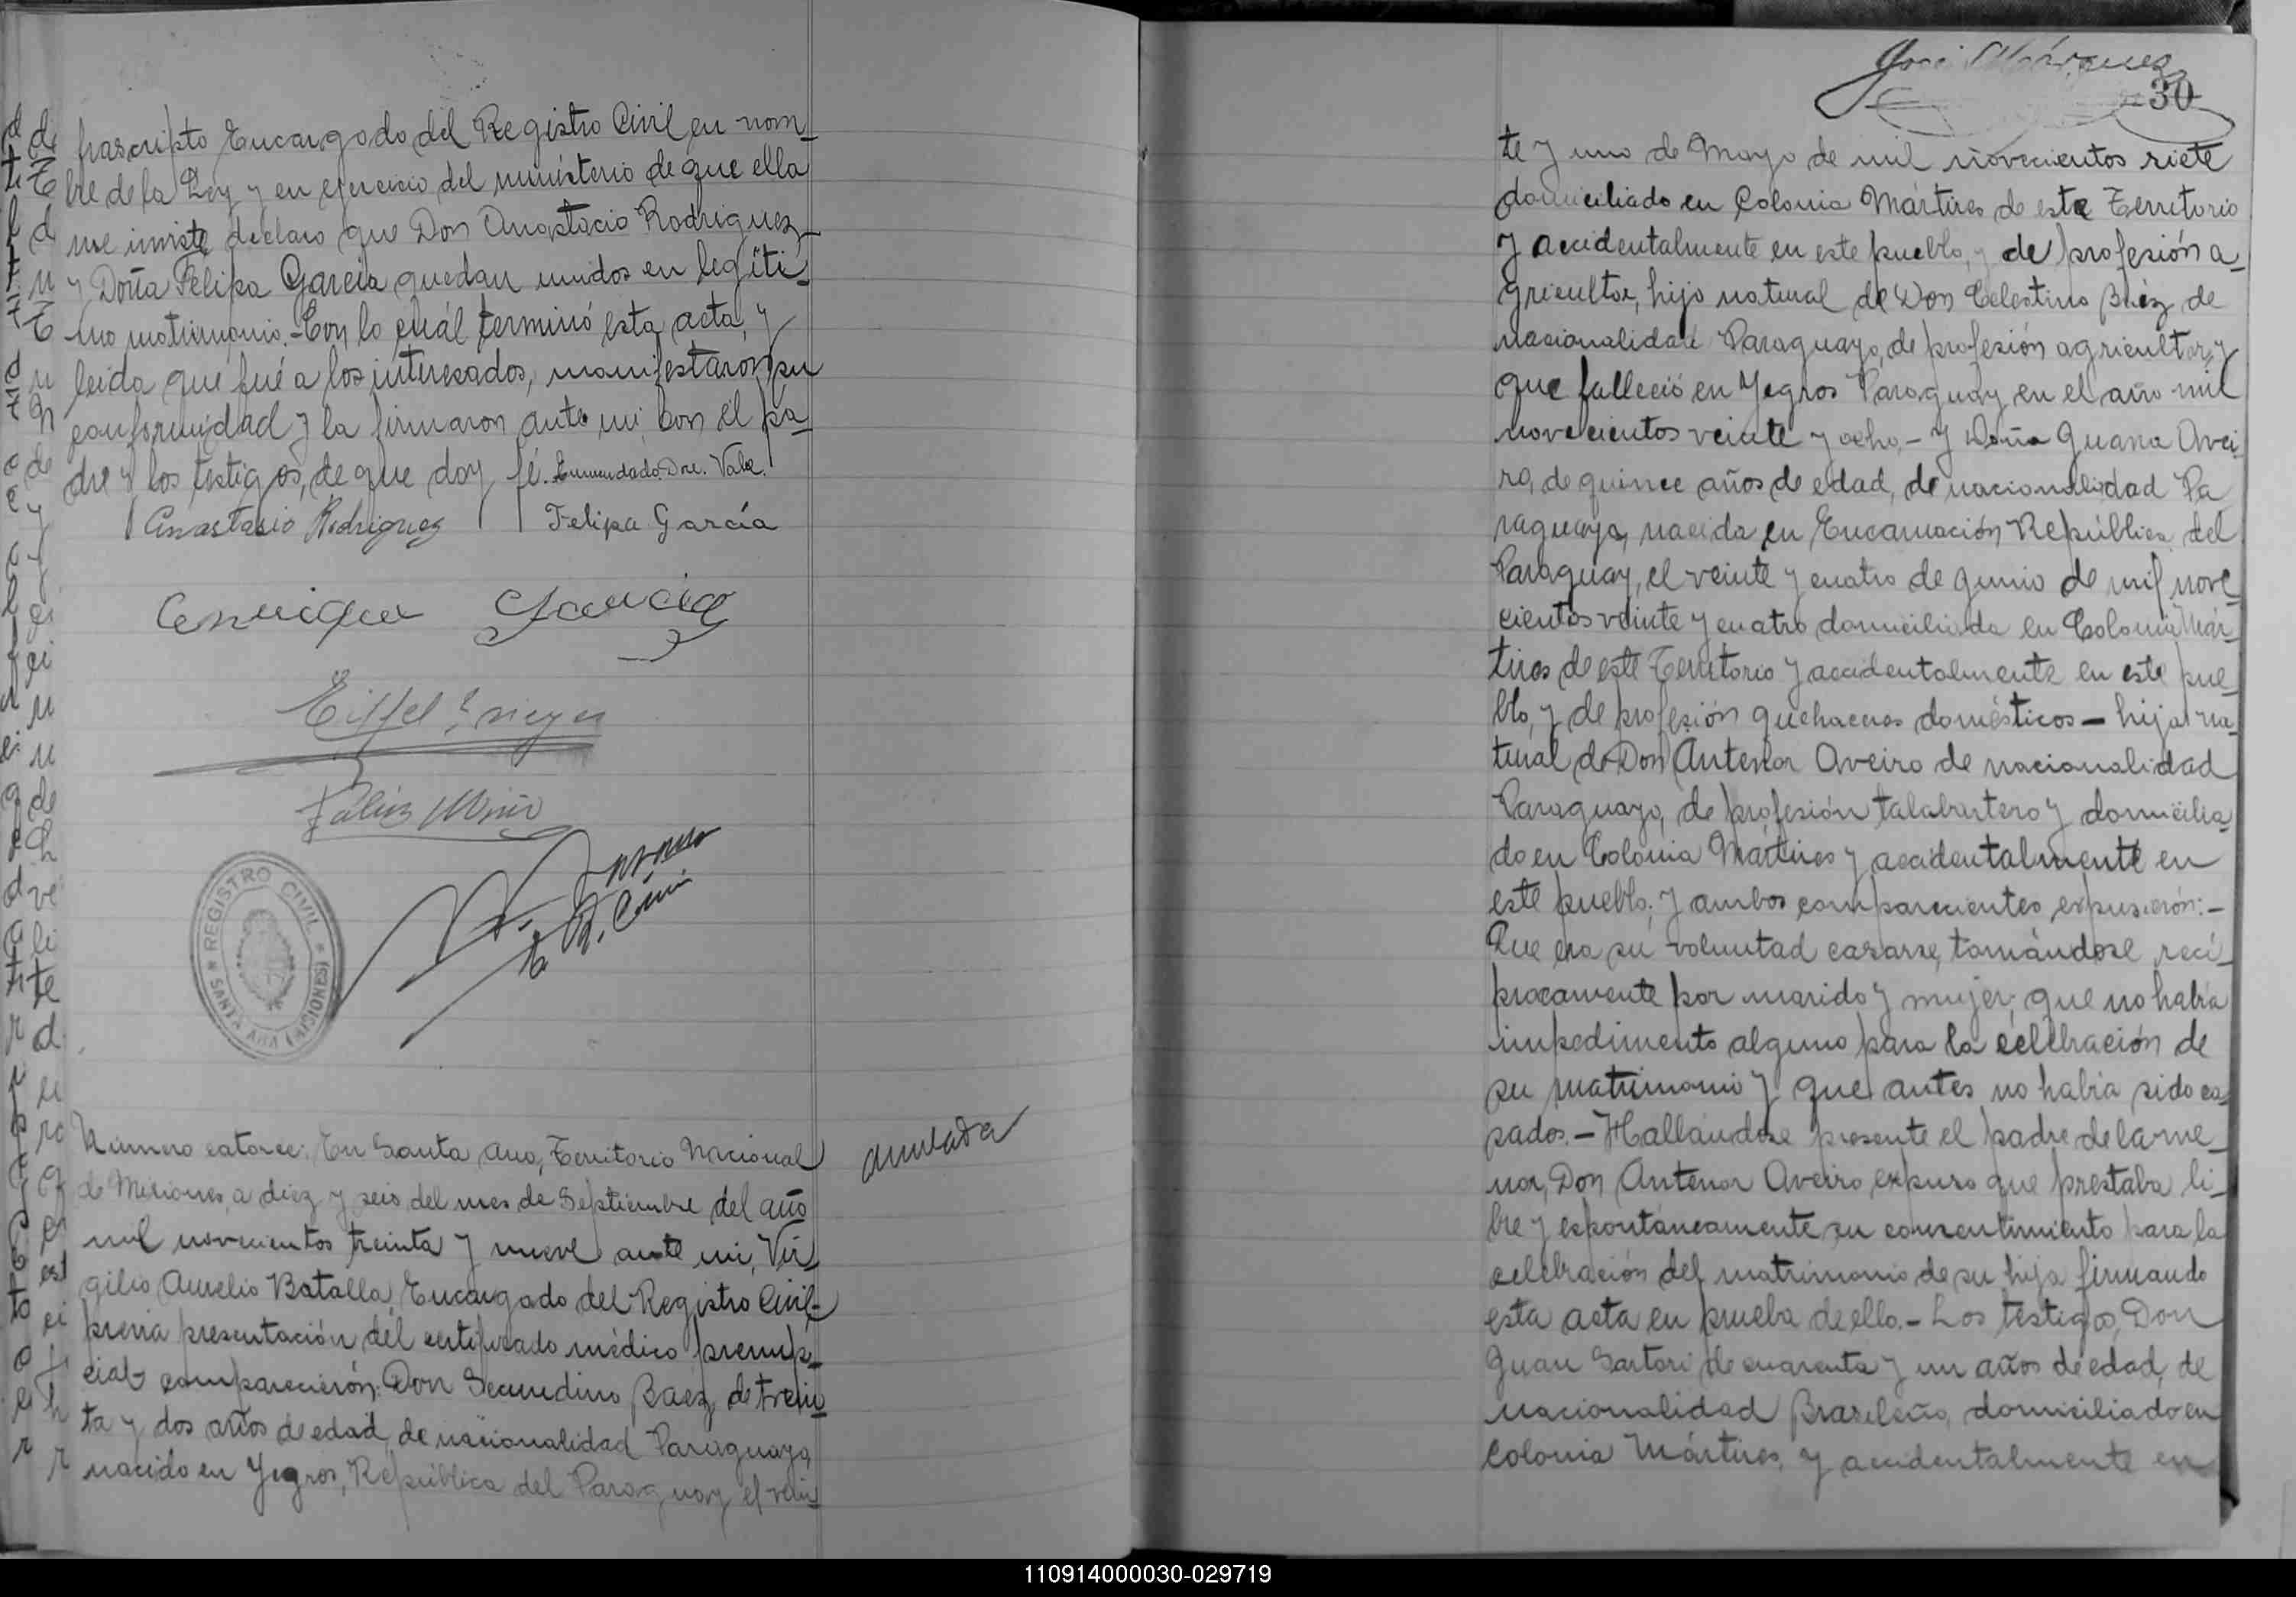 frascripto Encargado del Registro Civil en nom-
bre de la Ley y en ejercicio del ministerio de que ella
me inviste declaro que Don Anastacio Rodriguez-
y Doña Felipa García quedan unidos en legíti-
mo matrimonio.-Con lo cuál terminó esta acta, y
leida que fué a los interesados, manifestarón su
conformidad y la firmaron ante mi con el pa-
dre y los testigos, de que doy fé. Enmendado. Dre. Vale.
Anastasio Rodriguez Felipa García
Enrique Garcia
Eiffel
Feliz Miño
REGISTRO CIVIL
SANTA ANA (MISIONES)
Número catorce: En Santa Ana, Territorio Nacional
de Misiones, a diez y seis del mes de Septiembre del año
mil novecientos treinta y nueve ante mi, Vir-
gilio Aurelio Batalla, Encargado del Registro Civil-
previa presentación del certificado médico prenup-
cial- comparecierón: Don Secundino Baez, de trein-
ta y dos años de edad, de nacionalidad Paraguaya,
nacido en Yegros, República del Paraguay el vein-
anulada
José Márquez
30
te y uno de Mayo de mil novecientos siete
domiciliado en Colonia Mártires de este Territorio
y accidentalmente en este pueblo, y de profesión a-
gricultor, hijo natural de Don Celestino Báez de
nacionalidad Paraguayo, de profesión agricultor, y
que falleció en Yegros Paraguay en el año mil
novecientos veinte y ocho.- y Doña Juana Avei
ro, de quince años de edad, de nacionalidad Pa
raguaya, nacida en Encarnación República del
Paraguay, el veinte y cuatro de Junio de mil nove-
cientos veinte y cuatro domiciliada en Colonia Már-
tires de este Territorio y accidentalmente en este pue-
blo, y de profesión quehaceres domésticos - hija na-
tural de Don Antenor Aveiro de nacionalidad
Paraguayo, de profesión talabartero y domicilia-
do en Colonia Mártires y accidentalmente en
este pueblo; y ambos comparecientes expusierón:-
Que era su voluntad casarse, tomándose recí-
procamente por marido y mujer; que no había
impedimento alguno para la celebración de
su matrimonio y que antes no había sido ca-
sados.- Hallándose presente el padre de la me-
nor, Don Antenor Aveiro, expuso que prestaba li-
bre y espontáneamente su consentimiento para la
celebración del matrimonio de su hija firmando
esta acta en prueba de ello.- Los testigos, Don
Juan Sartori de cuarenta y un años de edad, de
nacionalidad Brasileño, domiciliado en
Colonia Mártires, y accidentalmente en
110914000030-029719